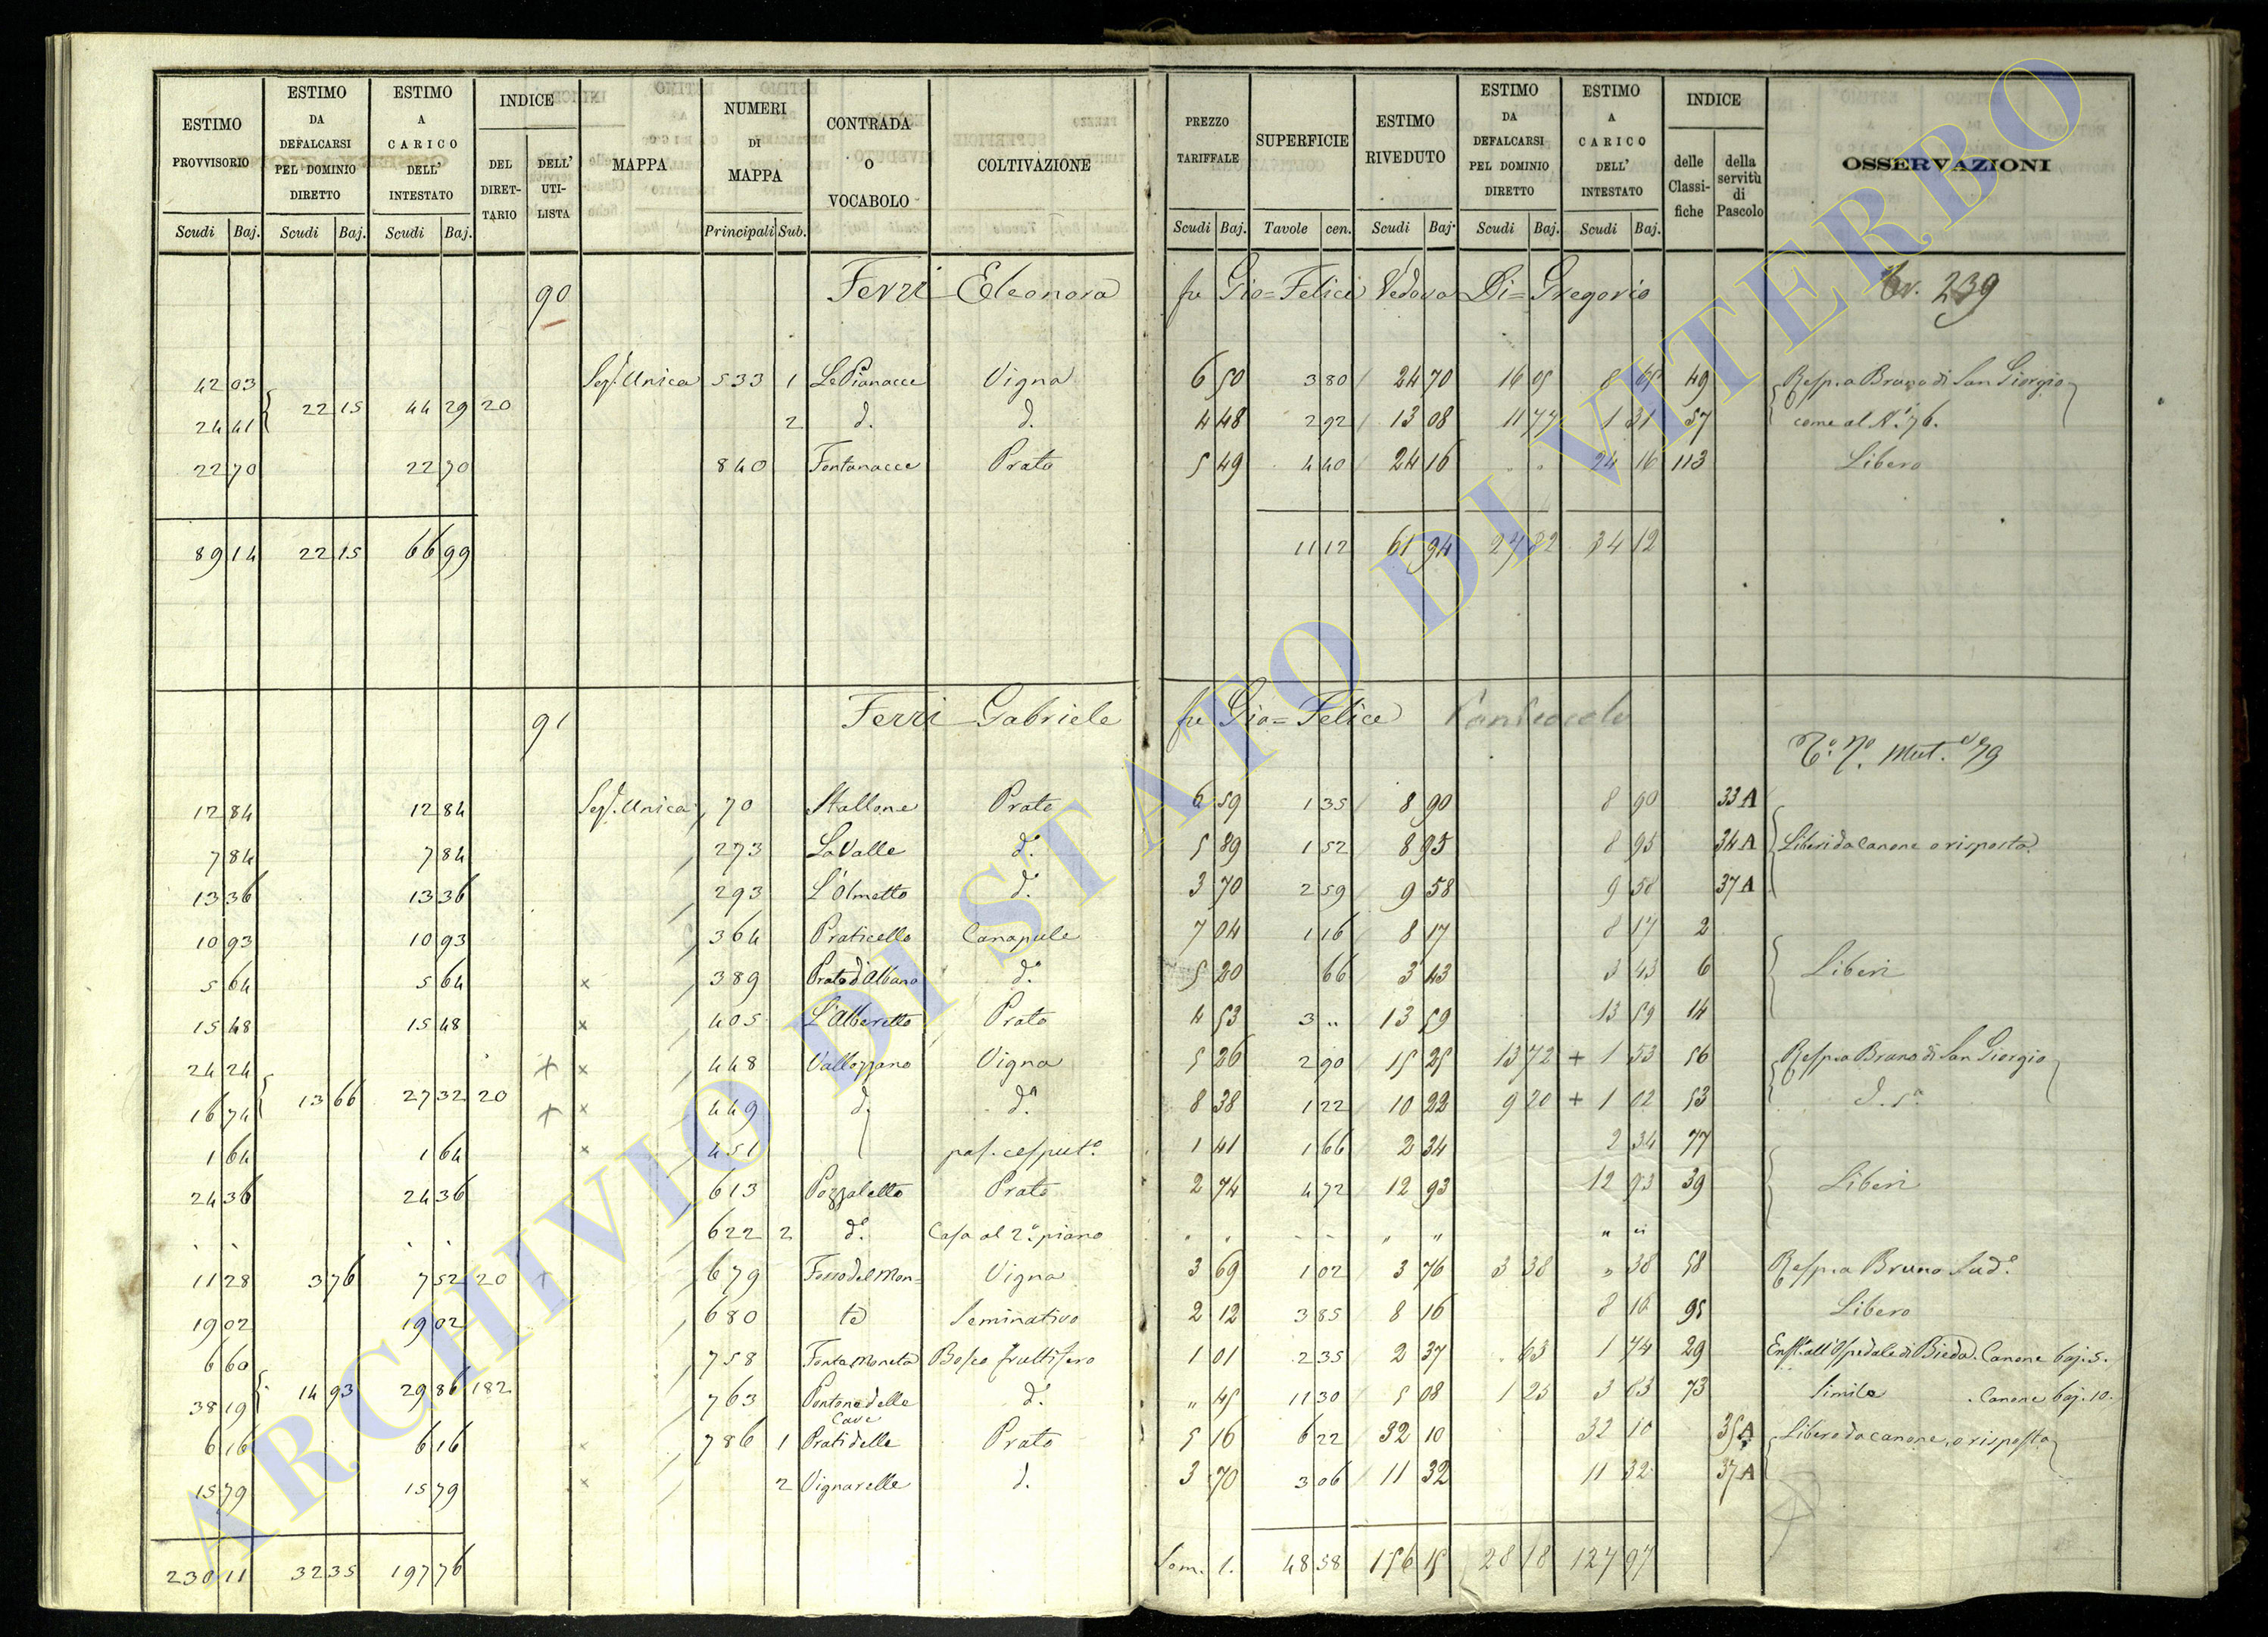 ESTIMO PROVVISORIO | ESTIMO DA DEFALCARSI PEL DOMINIO DIRETTO | ESTIMO A CARICO DELL' INTESTATO | INDICE DEL DIRETTARIO | DELL' UTILISTA | MAPPA | NUMERI DI MAPPA | CONTRADA O VOCABOLO | COLTIVAZIONE | PREZZO TARIFFALE | SUPERFICIE | ESTIMO RIVEDUTO | ESTIMO DA DEFALCARSI PEL DOMINIO DIRETTO | ESTIMO A CARICO DELL' INTESTATO | INDICE delle Classifiche | della servitù di Pascolo | OSSERVAZIONI
Scudi Baj. Scudi Baj. Scudi Baj. Principali Sub. Scudi Baj. Tavole cen. Scudi Baj. Scudi Baj. Scudi Baj.
90 Ferri Eleonora fu Gio= Felice Vedova Di= Gregorio 239
42 03 Sez. Unica 533 1 Le Pianacce Vigna 6 50 3 80 24 70 16 05 8 65 49 Resp. a Bruno di San Giorgio
22 15 44 29 20
24 41 2 d. d. 4 48 2 92 13 08 11 77 1 31 57 come al N. 76.
22 70 22 70 840 Fontanacce Prato 5 49 4 40 24 16 24 16 113 Libero
89 14 22 15 66 99 11 12 61 94 27 82 34 12
91 Ferri Gabriele fu Gio= Felice
Mut. 79
12 84 12 84 Sez. Unica 70 Stallone Prato 6 59 1 35 8 90 8 90 33 A
7 84 7 84 273 La Valle d. 5 89 1 52 8 95 8 95 34 A Liberi da canone o risposta
13 36 13 36 293 L'Olmetto d. 3 70 2 59 9 58 9 58 37 A
10 93 10 93 364 Praticello Canapule 7 04 1 16 8 17 8 17 2
5 64 5 64 × 389 Prato d'Albano d. 5 20 66 3 43 3 43 6 Liberi
15 48 15 48 × 405 L'Alberetto Prato 4 53 3 „ 13 59 13 59 14
24 24 + × 448 Vallozzano Vigna 5 26 2 90 15 25 13 72 + 1 53 56 Resp. a Bruno di San Giorgio
13 66 27 32 20
16 74 + × 449 d. d. 8 38 1 22 10 22 9 20 + 1 02 53
1 64 1 64 × 451 pas. cesput. 1 41 1 66 2 34 2 34 77
24 36 24 36 613 Pozzaletto Prato 2 74 4 72 12 93 12 93 39 Liberi
622 2 d. Casa al 2° piano
11 28 3 76 7 52 20 + 679 Fosso del Mon= Vigna 3 69 1 02 3 76 3 38 „ 38 58 Resp. a Bruno Sud.
19 02 19 02 680 te Seminativo 2 12 3 85 8 16 8 16 95 Libero
6 60 758 Fonte Moneta Bosco fruttifero 1 01 2 35 2 37 63 1 74 29 Enft. all'Ospedale di Bieda. Canone baj. 5.
14 93 29 86 182
38 19 763 Pontone delle Cave d. „ 45 11 30 5 08 1 25 3 83 73 Simile . Canone baj. 10.
6 16 6 16 × 786 1 Prati delle Prato 5 16 6 22 32 10 32 10 35 A Libero da canone, o risposta
15 79 15 79 × 2 Vignarelle d. 3 70 3 06 11 32 11 32 37 A
230 11 32 35 197 76 Som. 1. 48 58 156 15 28 18 127 97
ARCHIVIO DI STATO DI VITERBO